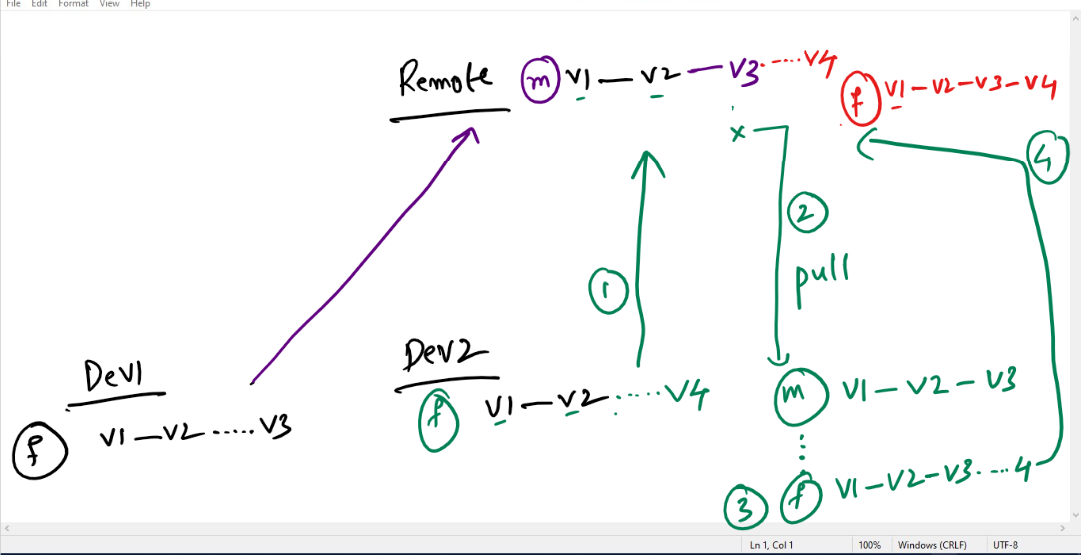 File Edit Format View Help
Remote m V1 — V2 — V3 ..... V4
f V1 — V2 — V3 — V4
x
4
2
pull
1
Dev1
Dev2
f V1 — V2 ..... V3
f V1 — V2 ...... V4
m V1 — V2 — V3
3 f V1 — V2 — V3 .... 4
Ln 1, Col 1 100% Windows (CRLF) UTF-8